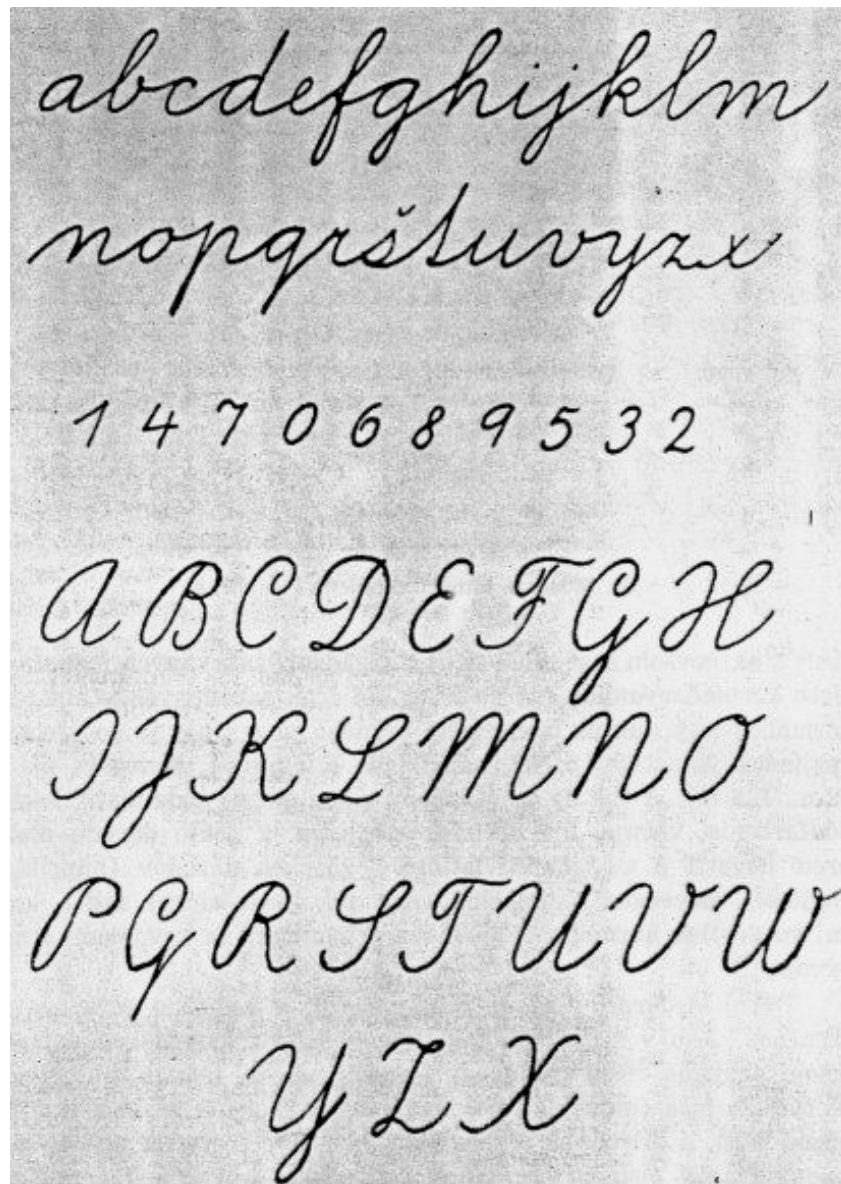 abcdefghijklm
nopqrštuvyzx
1 4 7 0 6 8 9 5 3 2
A B C D E F G H
I J K L M N O
P Q R S T U V W
Y Z X